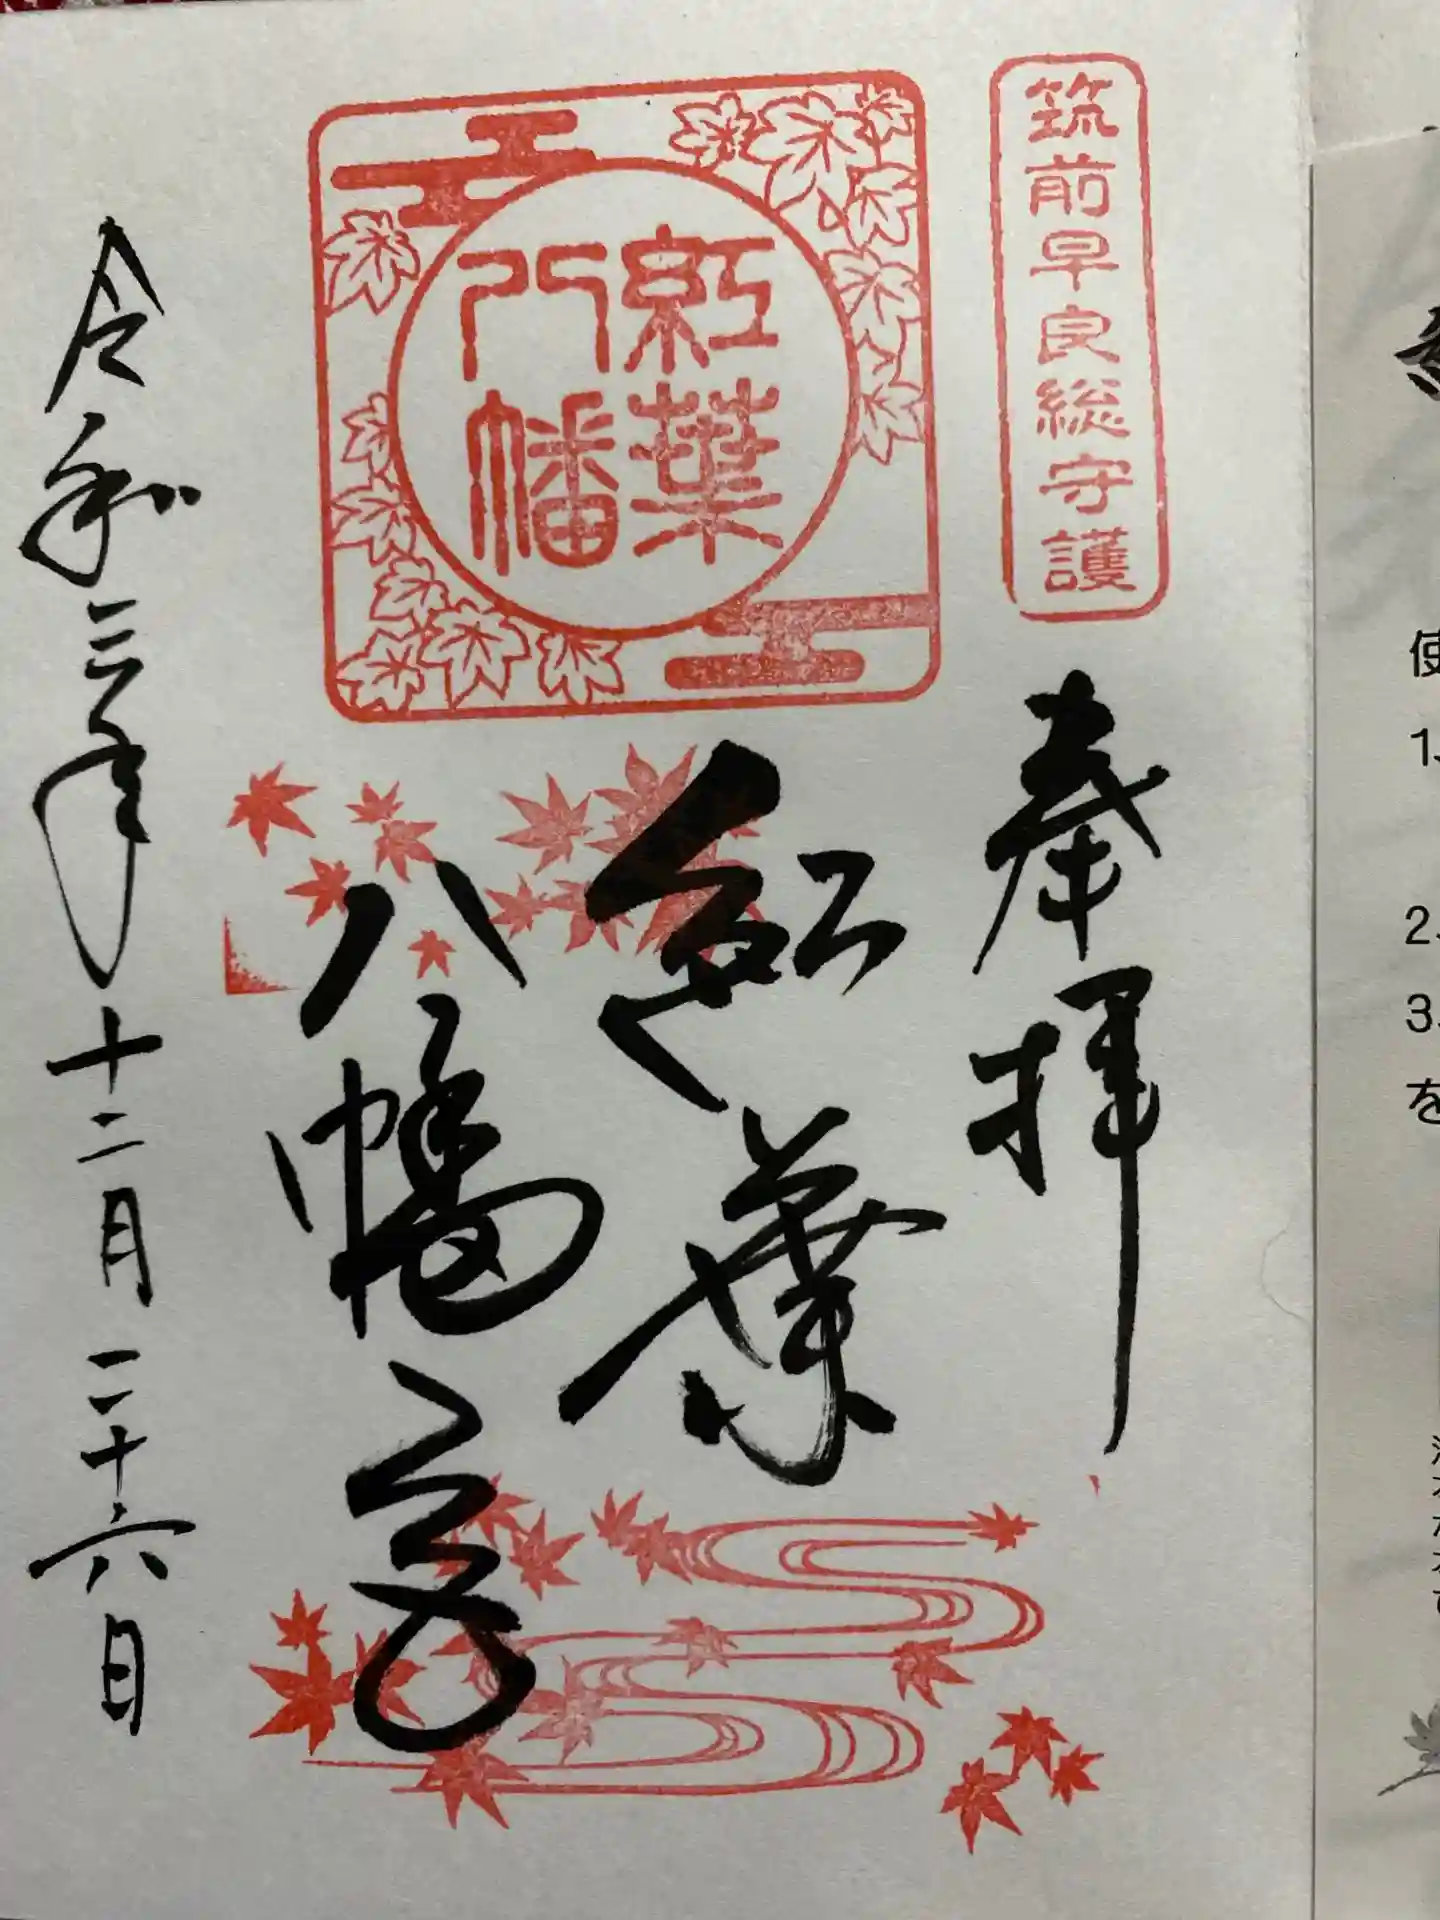 筑前早良総守護
奉拝
紅葉
八幡
紅葉
八幡宮
令和三年十二月二十六日
使
1、
2、
3、
を